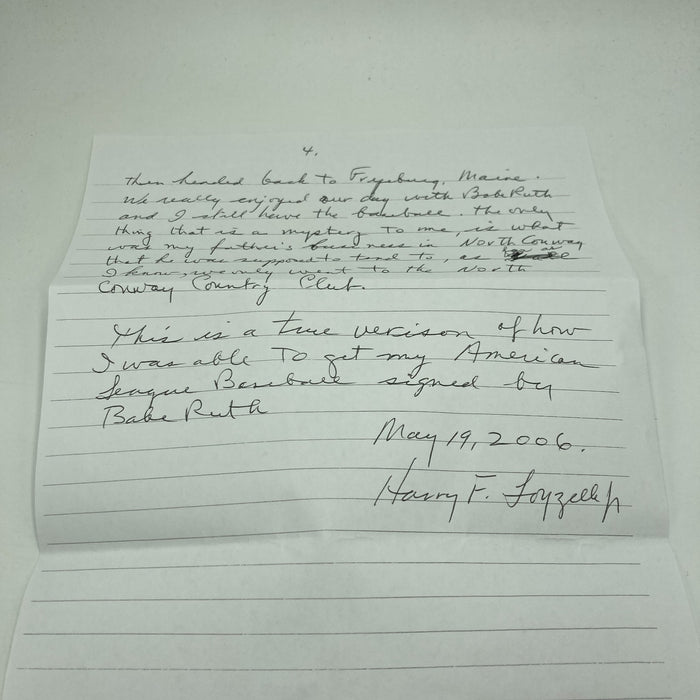 4.
then headed back to Fryeburg, Maine.
We really enjoyed our day with Babe Ruth
and I still have the baseball. The only
thing that is a mystery to me, is what
was my father's business in North Conway
that he was supposed to tend to, as far as
I know, we only went to the North
Conway Country Club.
This is a true verison of how
I was able to get my American
League Baseball signed by
Babe Ruth
May 19, 2006.
Harry F.